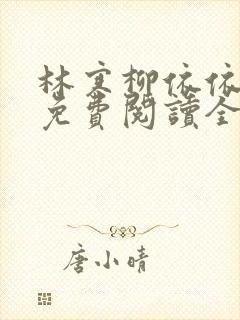 林寒柳依依
免費閱讀全
唐小晴